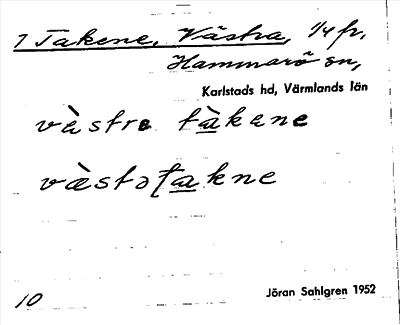 7 Takene, Västra, 1/4 fr,
Hammarö sn,
Karlstads hd, Värmlands län
vàstre tàkene
vàstotakne
10 Jöran Sahlgren 1952